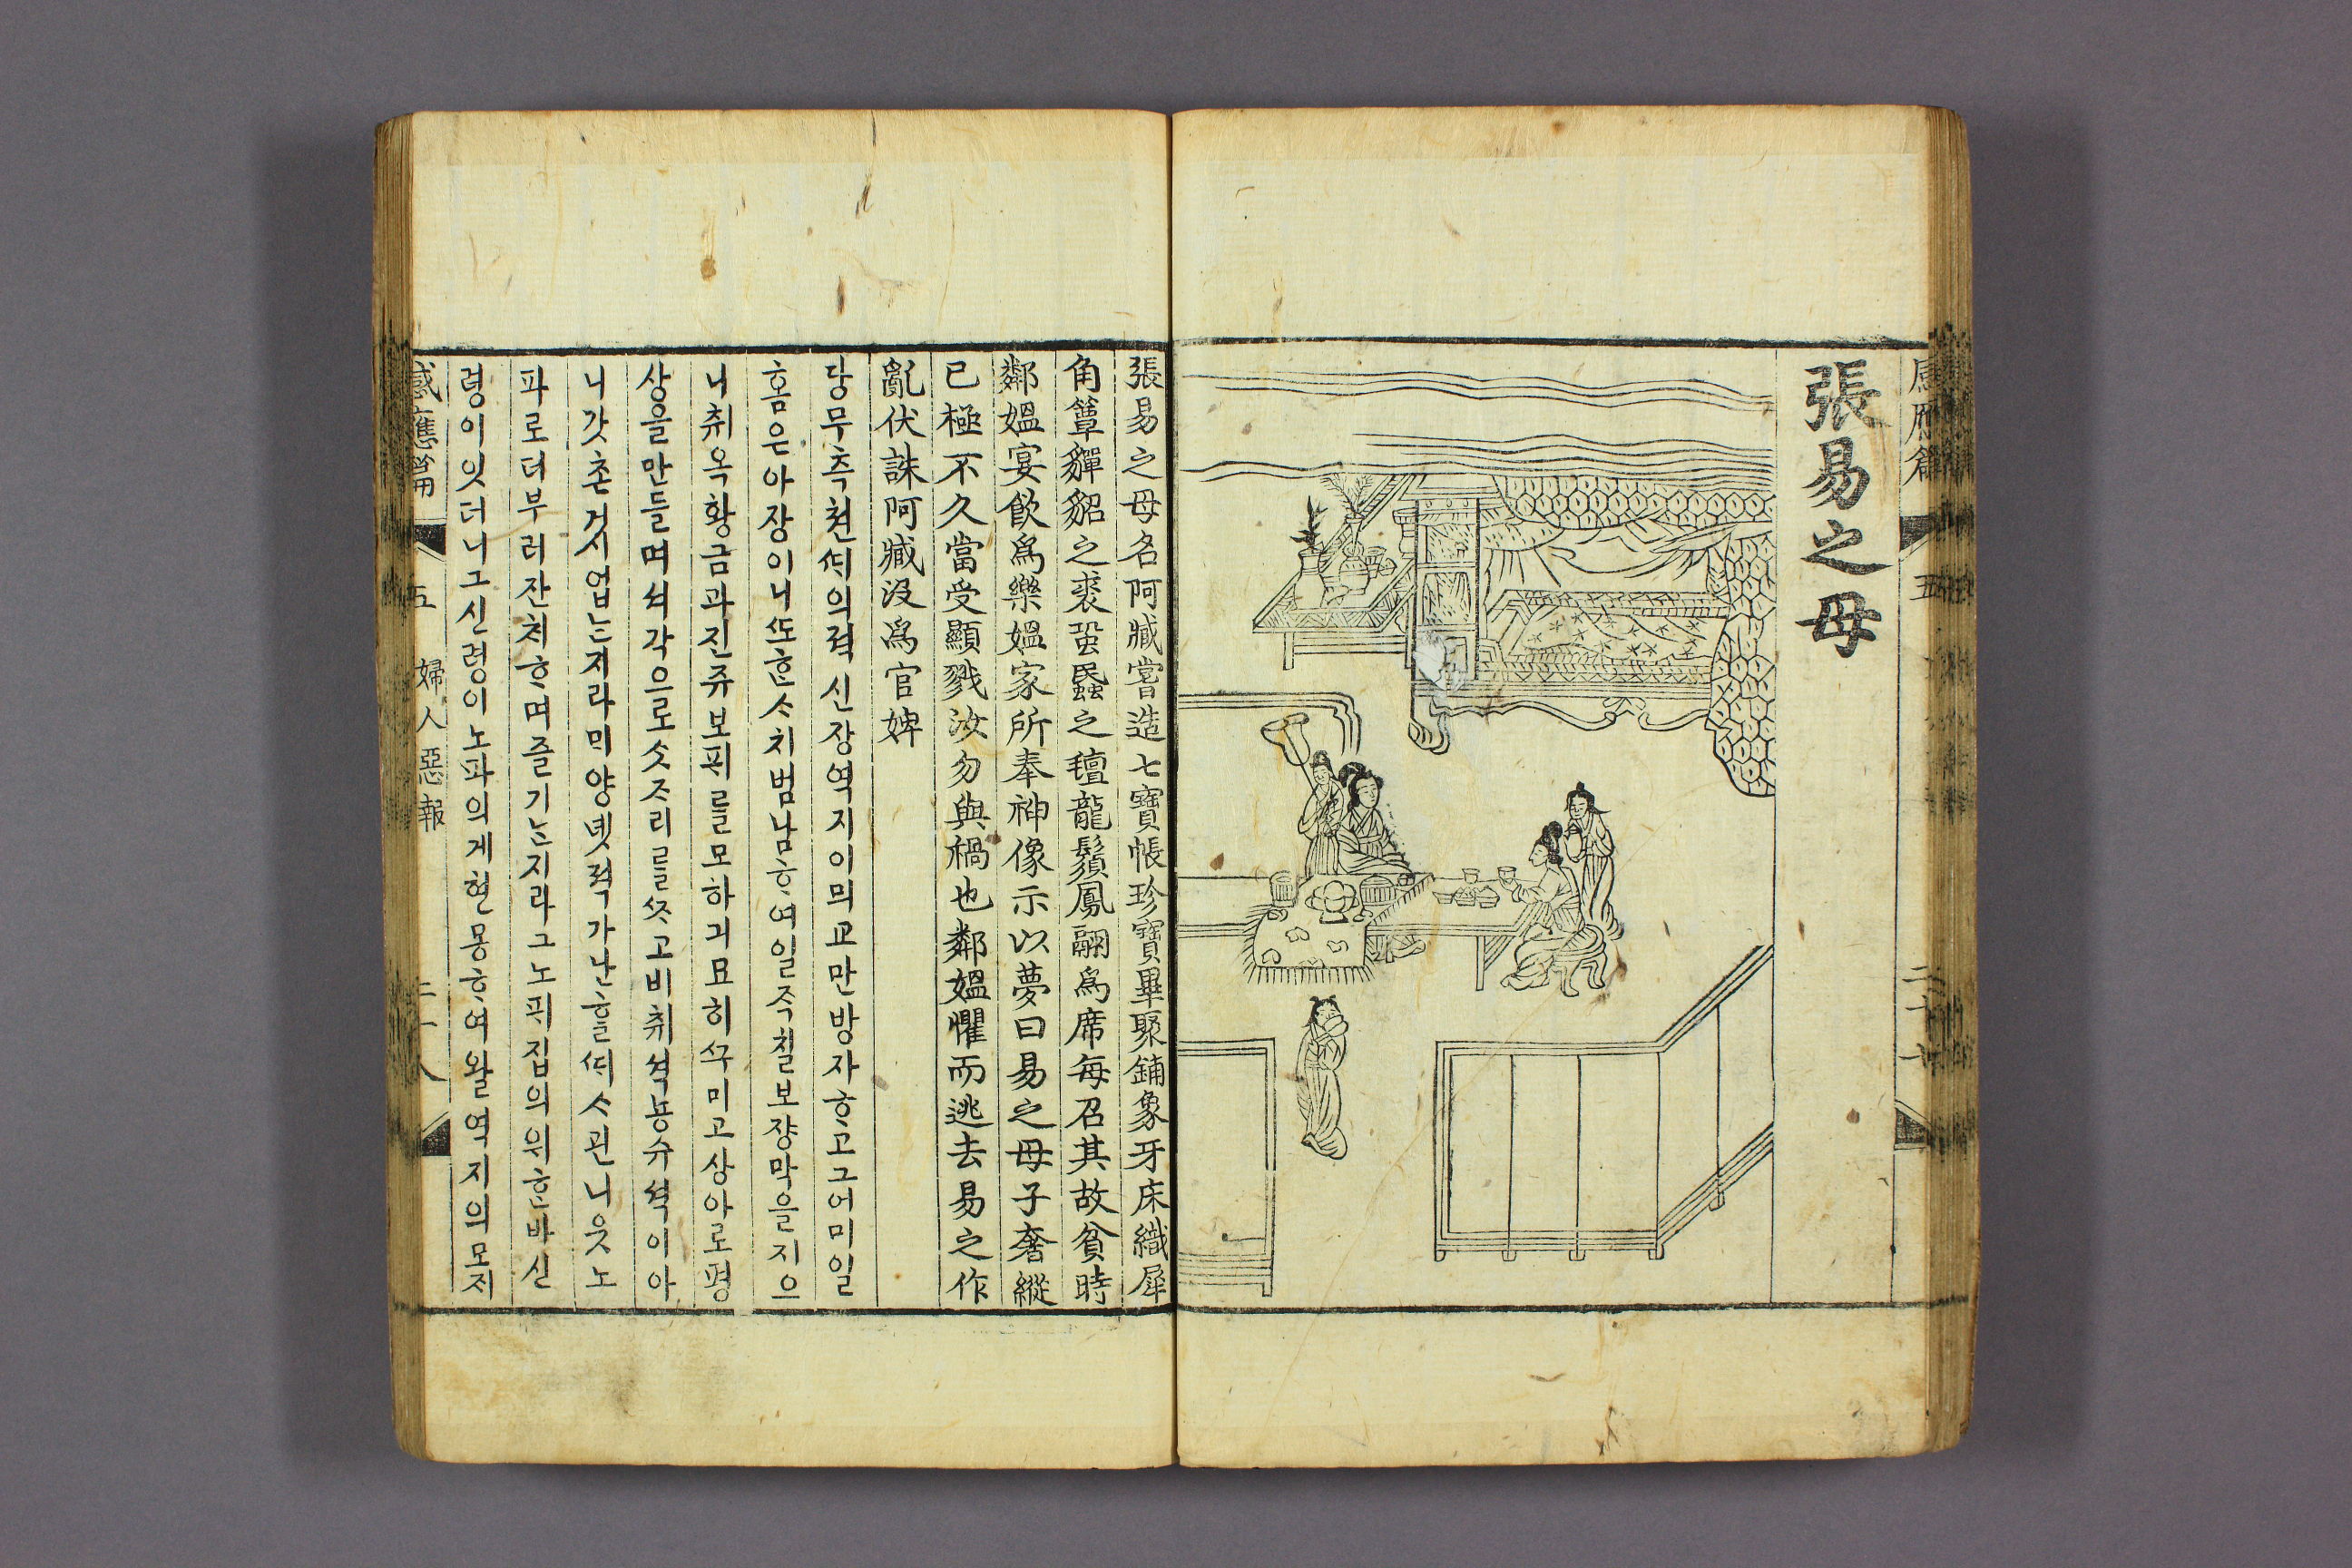 感應篇 五 二十七
張易之母
張易之母名阿臧嘗造七寶帳珍寶畢聚鋪象牙床織犀
角簟貚貂之裘蛩蟁之氈龍鬚鳳翮爲席每召其故貧時
鄰媼宴飮爲樂媼家所奉神像示以夢曰易之母子奢縱
已極不久當受顯戮汝勿與禍也鄰媼懼而逃去易之作
亂伏誅阿臧沒爲官婢
당무측쳔ᄯᅢ의젹신장역지이믜교만방자ᄒᆞ고그어미일
홈은아장이니ᄯᅩᄒᆞᆫᄉᆞ치범남ᄒᆞ여일즉칠보쟝막을지으
니취옥황금과진쥬보ᄑᆡ를모하긔묘히ᄭᅮ미고상아로평
상을만들며셔각으로삿ᄌᆞ리를ᄶᆞ고비취셕뇽슈셕이아
니갓촌거시업ᄂᆞᆫ지라ᄆᆡ양녯젹가난ᄒᆞᆯᄯᅢᄉᆞ괸니웃노
파로더부러잔ᄎᆡᄒᆞ며즐기ᄂᆞᆫ지라그노ᄑᆡ집의위ᄒᆞᆫ바신
령이잇더니그신령이노파의게현몽ᄒᆞ여왈역지의모ᄌᆡ
感應篇 五 婦人惡報 二十八